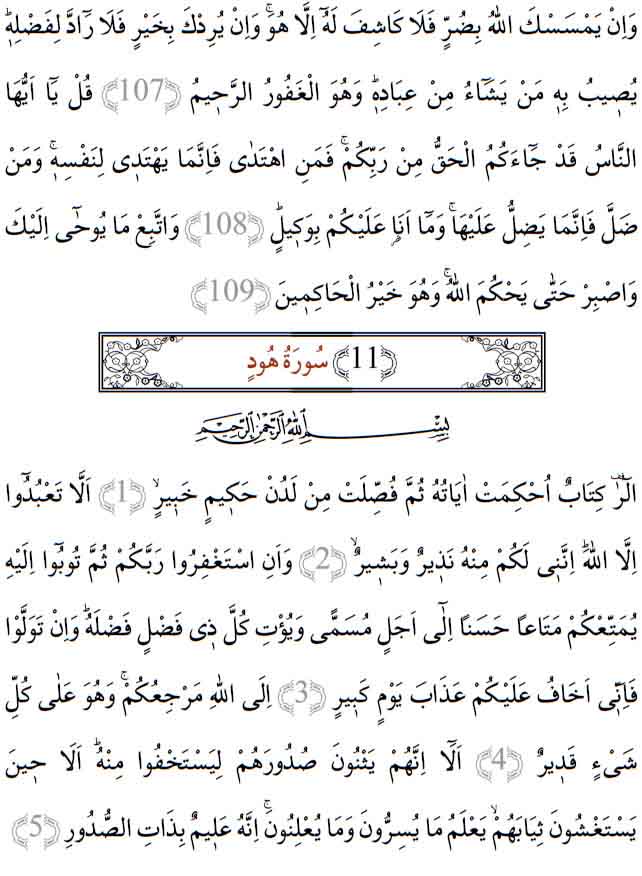 وَاِنْ يَمْسَسْكَ اللّٰهُ بِضُرٍّ فَلَا كَاشِفَ لَهُٓ اِلَّا هُوَۚ وَاِنْ يُرِدْكَ بِخَيْرٍ فَلَا رَٓادَّ لِفَضْلِه۪ۜ
يُص۪يبُ بِه۪ مَنْ يَشَٓاءُ مِنْ عِبَادِه۪ۜ وَهُوَ الْغَفُورُ الرَّح۪يمُ (107) قُلْ يَٓا اَيُّهَا
النَّاسُ قَدْ جَٓاءَكُمُ الْحَقُّ مِنْ رَبِّكُمْۚ فَمَنِ اهْتَدٰى فَاِنَّمَا يَهْتَد۪ي لِنَفْسِه۪ۚ وَمَنْ
ضَلَّ فَاِنَّمَا يَضِلُّ عَلَيْهَاۚ وَمَٓا اَنَا۬ عَلَيْكُمْ بِوَك۪يلٍۜ (108) وَاتَّبِعْ مَا يُوحٰٓى اِلَيْكَ
وَاصْبِرْ حَتّٰى يَحْكُمَ اللّٰهُۚ وَهُوَ خَيْرُ الْحَاكِم۪ينَ (109)
(11) سُورَةُ هُودٍ
بِسْمِ اللّٰهِ الرَّحْمٰنِ الرَّح۪يمِ
الٓرٰ۠ كِتَابٌ اُحْكِمَتْ اٰيَاتُهُ ثُمَّ فُصِّلَتْ مِنْ لَدُنْ حَك۪يمٍ خَب۪يرٍۙ (1) اَلَّا تَعْبُدُٓوا
اِلَّا اللّٰهَۜ اِنَّن۪ي لَكُمْ مِنْهُ نَذ۪يرٌ وَبَش۪يرٌۙ (2) وَاَنِ اسْتَغْفِرُوا رَبَّكُمْ ثُمَّ تُوبُٓوا اِلَيْهِ
يُمَتِّعْكُمْ مَتَاعًا حَسَنًا اِلٰٓى اَجَلٍ مُسَمًّى وَيُؤْتِ كُلَّ ذ۪ي فَضْلٍ فَضْلَهُۜ وَاِنْ تَوَلَّوْا
فَاِنّ۪ٓي اَخَافُ عَلَيْكُمْ عَذَابَ يَوْمٍ كَب۪يرٍ (3) اِلَى اللّٰهِ مَرْجِعُكُمْۚ وَهُوَ عَلٰى كُلِّ
شَيْءٍ قَد۪يرٌ (4) اَلَٓا اِنَّهُمْ يَثْنُونَ صُدُورَهُمْ لِيَسْتَخْفُوا مِنْهُۜ اَلَا ح۪ينَ
يَسْتَغْشُونَ ثِيَابَهُمْۙ يَعْلَمُ مَا يُسِرُّونَ وَمَا يُعْلِنُونَۚ اِنَّهُ عَل۪يمٌ بِذَاتِ الصُّدُورِ (5)